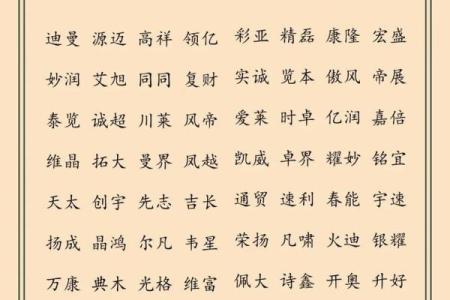 迪曼 源迈 高祥 领亿 彩亚 精磊 康隆 宏盛
妙润 艾旭 同同 复财 实诚 览本 傲风 帝展
泰览 诚超 川莱 风帝 爱莱 时卓 亿润 嘉倍
维晶 拓大 曼界 凤越 凯威 卓界 耀妙 铭宜
天太 创宇 先志 吉长 通贸 速利 春能 宇速
扬成 晶鸿 尔凡 韦星 荣扬 凡啸 火迪 银耀
万康 典木 光格 维富 佩大 诗鑫 开奥 升好